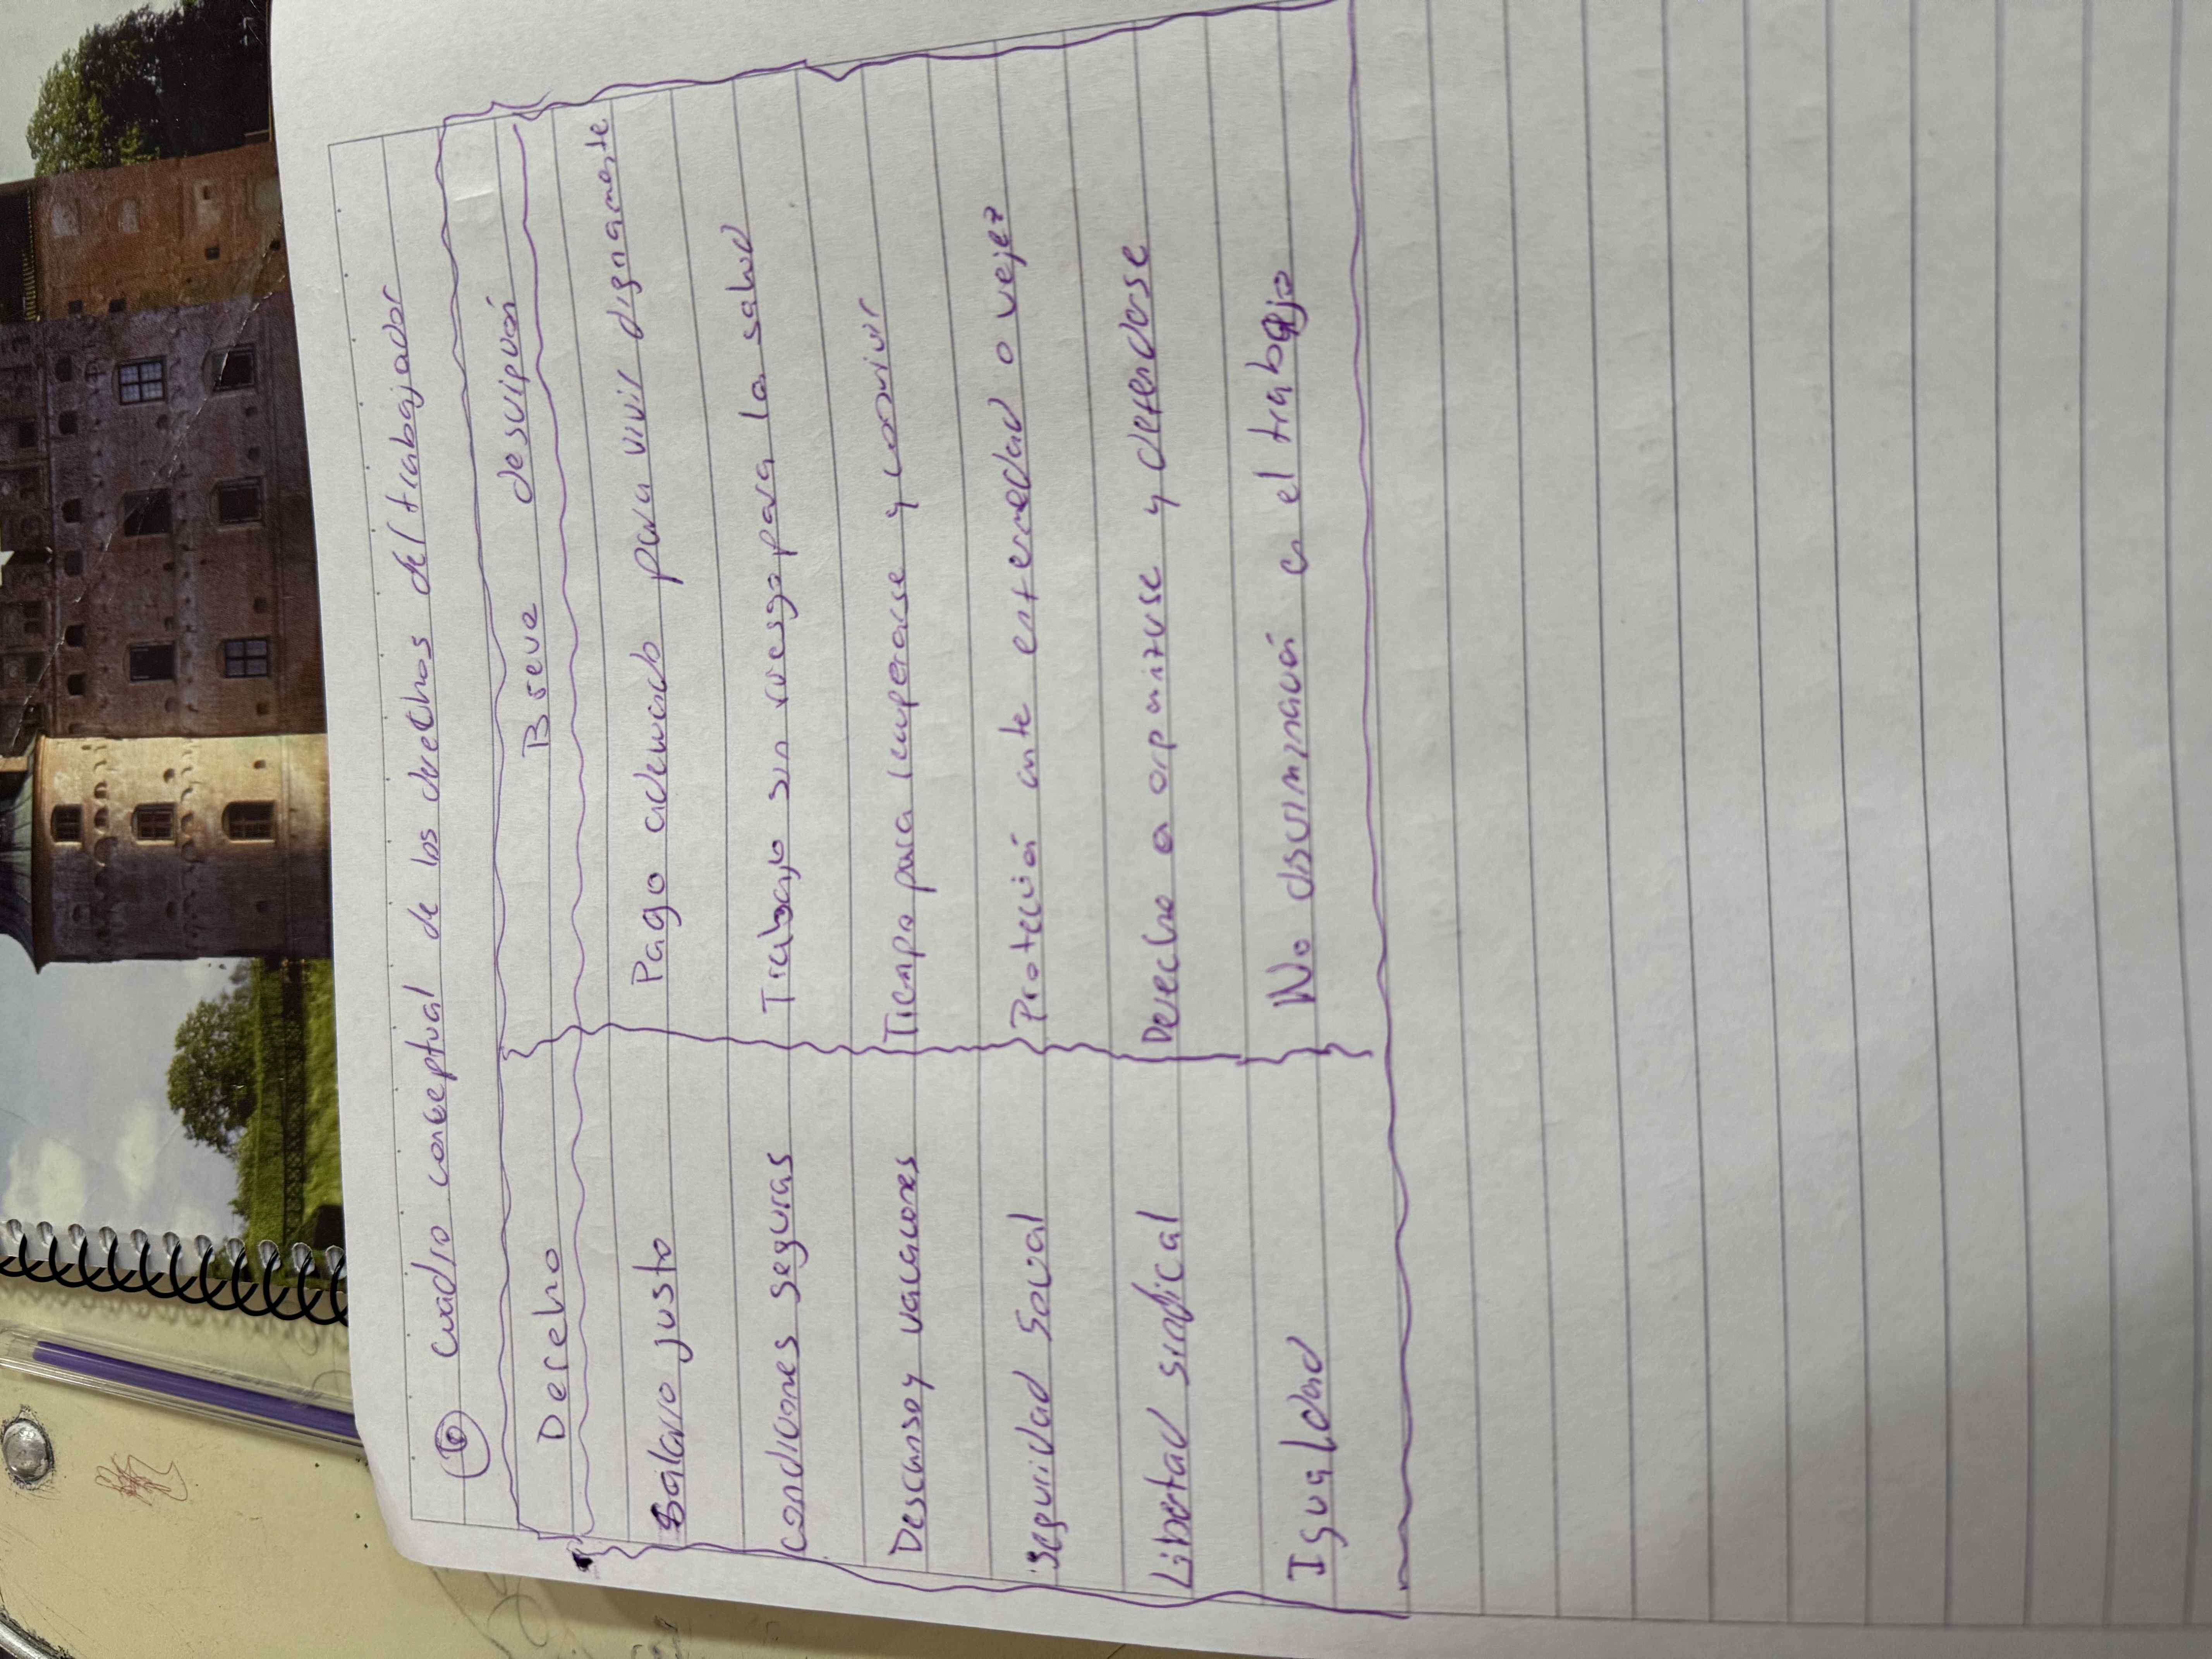 ⑥ cuadro conceptual de los derechos del trabajador
Derecho Breve descripción
Salario justo Pago adecuado para vivir dignamente
condiciones seguras Trabajo sin riesgo para la salud
Descanso y vacaciones Tiempo para recuperarse y convivir
Seguridad Social Protección ante enfermedad o vejez
Libertad sindical Derecho a organizarse y defenderse
Igualdad No discriminación en el trabajo